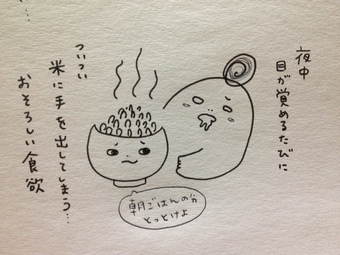 夜中
目が覚めるたびに
ついつい
米に手を出してしまう…
おそろしい食欲
朝ごはんの分
とっとけよ